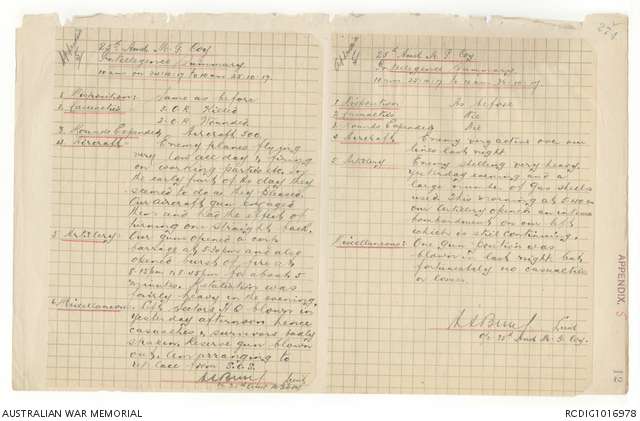 25th Aust M. G. Coy
Intelligence Summary
10 am on 24.10.17 to 10 am 25.10.17.
1. Disposition: Same as before
2. Casualties 2. O.R. Killed
2. O.R. Wounded
3. Rounds Expended, Aircraft 500.
4. Aircraft Enemy planes flying
very low all day & firing
on working parties etc,
the early part of the day they
seemed to do as they pleased.
Our aircraft gun engaged
them and had the effect of
turning one straight back.
5. Artillery: Our gun opened a
barrage at 5.30am and also
opened burst of fire at
8.15pm & 8.45pm for about 5
minutes. Retaliation was
fairly heavy in the evening.
6. Miscellaneous: Sectors H.Q. blown in
yesterday afternoon hence
casualties & survivors badly
shaken. Reserve gun blown
out. Am arranging to
replace from
Lieut
25th Aust M. G. Coy
Intelligence Summary
10 am 25.10.17 to 10 am 26.10.17
1 Disposition As before
2 Casualties Nil
3 Rounds Expended Nil
4 Aircraft Enemy very active over our
lines last night.
5 Artillery Enemy shelling very heavy
yesterday evening and a
large number of Gas shells
used. This morning at 5.40am
our Artillery opened an intense
bombardment on our left
which is still continuing.
Miscellaneous: One gun position was
blown in last night but
fortunately no casualties
or losses.
Lieut
O/c 25th Aust M. G. Coy.
APPENDIX. 5
12
AUSTRALIAN WAR MEMORIAL
RCDIG1016978